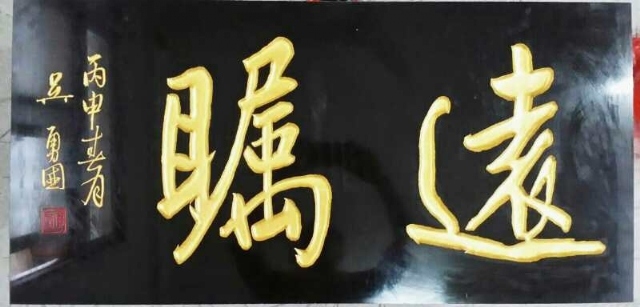 遠矚
丙申春月
吴勇國